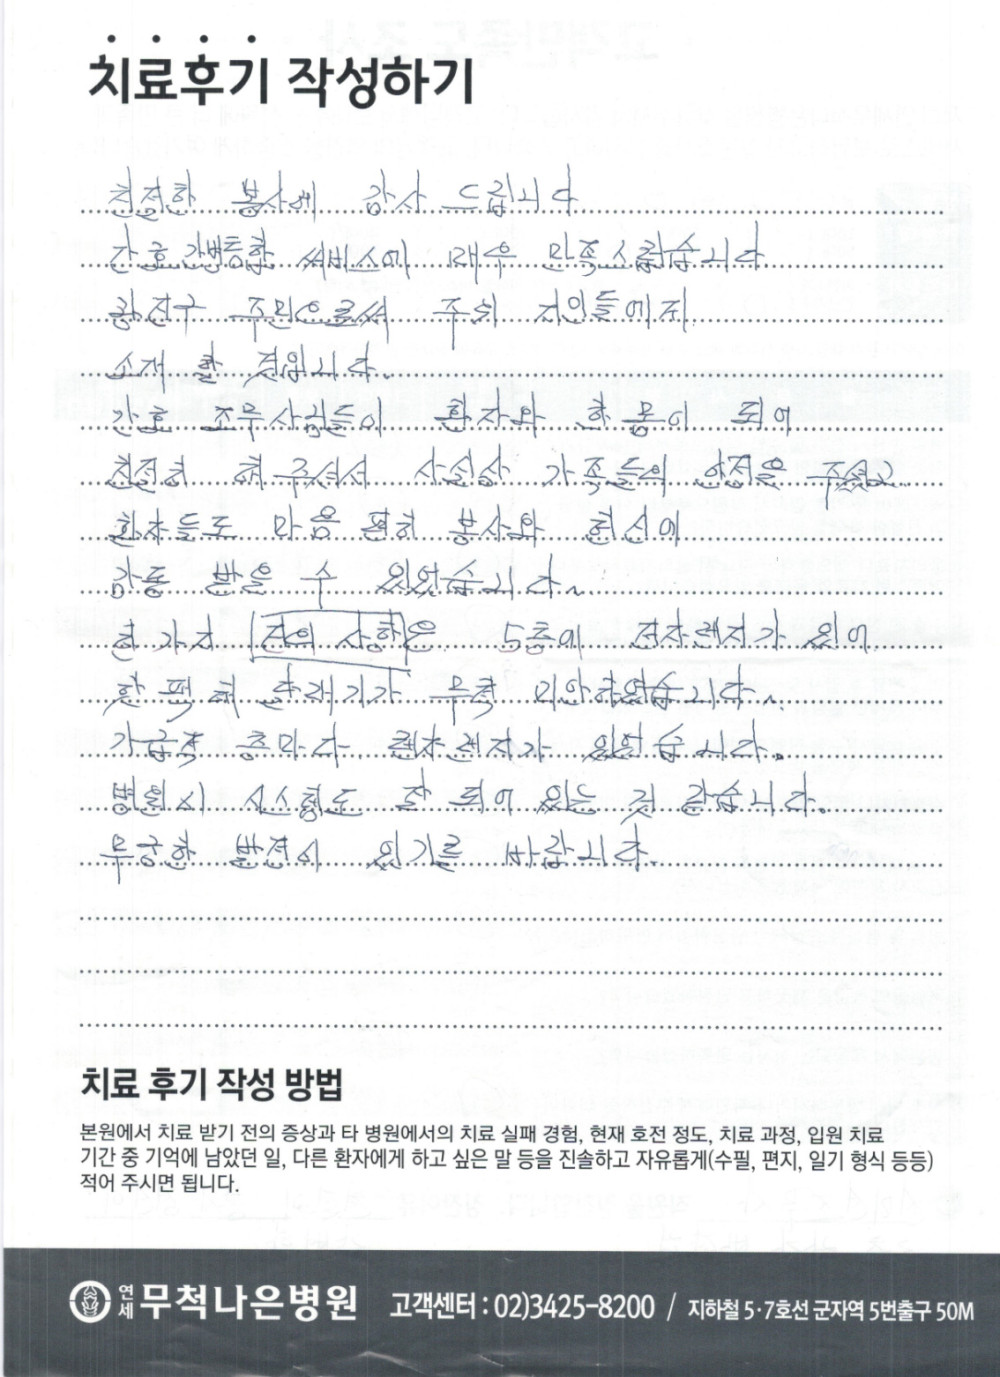 치료후기 작성하기
친절한 봉사에 감사 드립니다
간호간병통합 써비스에 매우 만족스럽습니다
광진구 주민으로써 주위 지인들에게
소개 할 것입니다.
간호 조무사님들이 환자와 한 몸이 되어
친절히 해주셔서 사실상 가족들의 안정을 주셨고
환자들도 마음 편히 봉사와 헌신에
감동 받을 수 있었습니다.
한가지 건의 사항은 5층에 전자렌지가 있어
난처하기가 무척 미안하였습니다.
가급적 층마다 전자렌지가 있었습니다.
병원시 시스템도 잘 되어 있는 것 같습니다.
무궁한 발전이 있기를 바랍니다.
치료 후기 작성 방법
본원에서 치료 받기 전의 증상과 타 병원에서의 치료 실패 경험, 현재 호전 정도, 치료 과정, 입원 치료
기간 중 기억에 남았던 일, 다른 환자에게 하고 싶은 말 등을 진솔하고 자유롭게(수필, 편지, 일기 형식 등등)
적어 주시면 됩니다.
연세 무척나은병원 고객센터 : 02)3425-8200 / 지하철 5·7호선 군자역 5번출구 50M